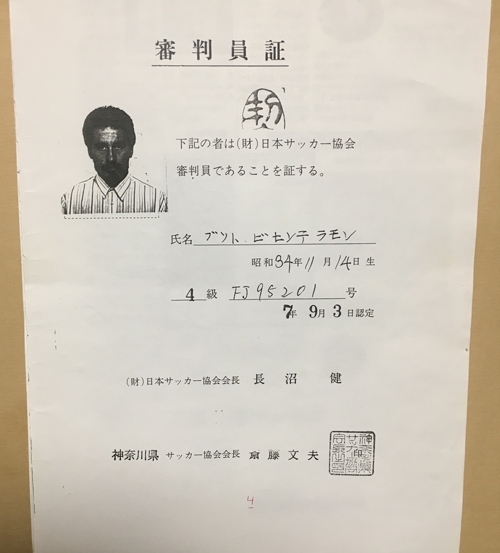 審判員証
下記の者は(財)日本サッカー協会
審判員であることを証する。
氏名 ブソト.ビセンテ ラモン
昭和34年11月14日生
4級 FJ95201号
7年9月3日認定
(財)日本サッカー協会会長 長沼 健
神奈川県 サッカー協会会長 斎藤文夫
4